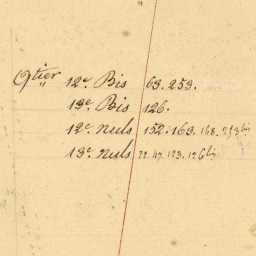 9tier 12e Bis 63. 253.
13e Bis 126.
12e nuls 152. 163. 168. 253bis
13e nuls 22. 47. 123. 126bis